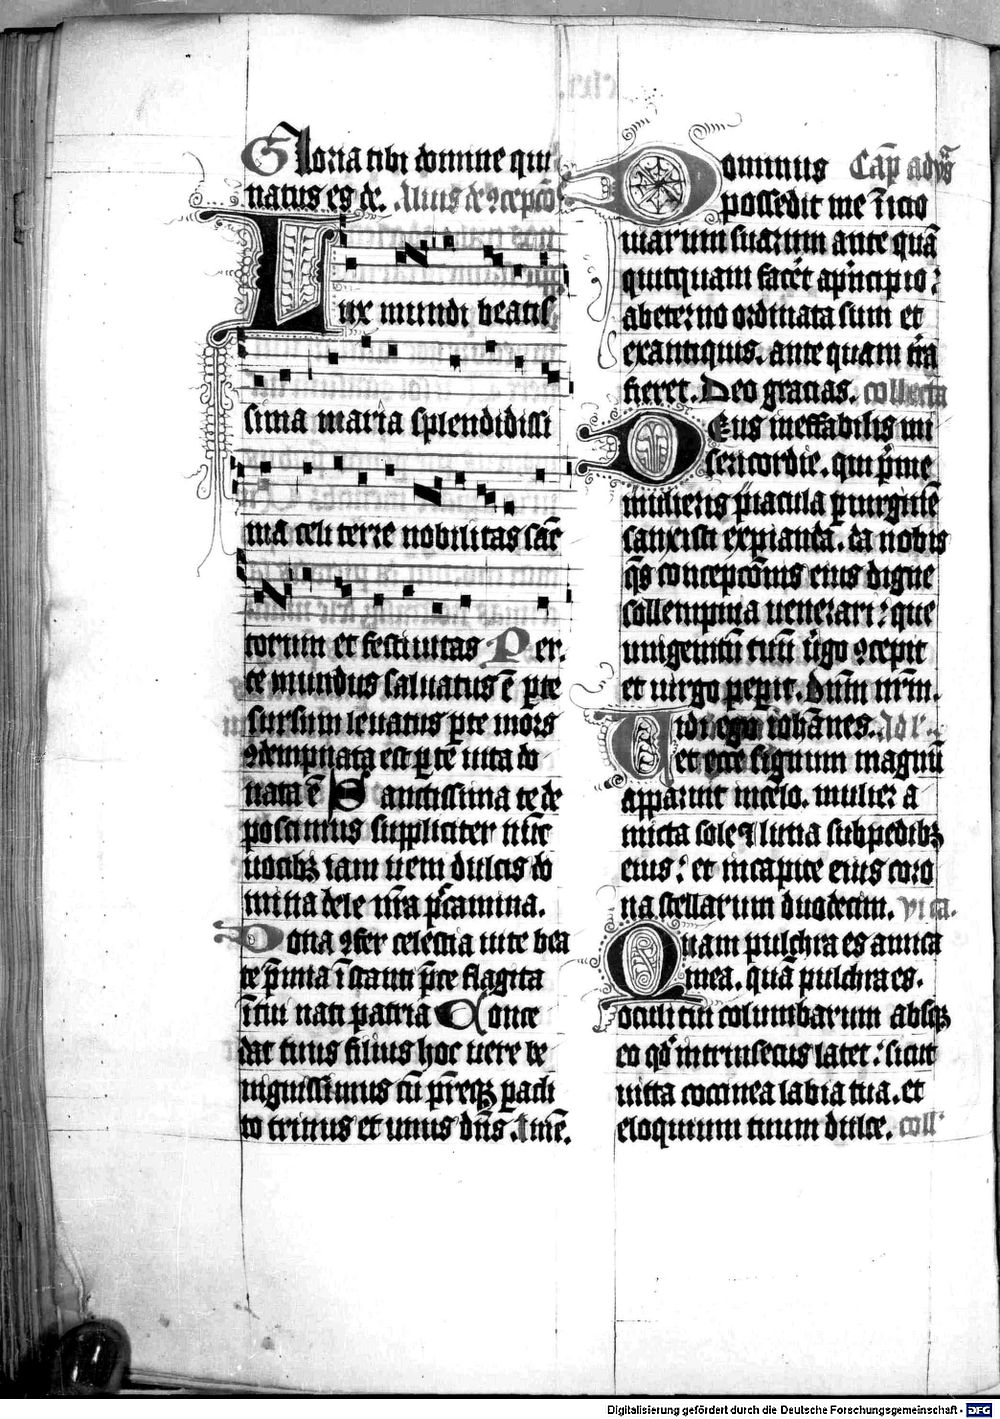 Gloria tibi domine qui
natus es de. Alius de ꝯcepcōe
Lux mundi beatis
sima maria splendidissi
ma celi terre nobilitas sāc
torum et festiuitas Per.
te mundus saluatus ē p̱ te
sursum leuatus p̱ te mors
ꝯdempnata est p̱ te uita do
nata ē Sanctissima te de
poscimus suppliciter nūc
uocibꝫ iam ueni dulcis do
mina dele nr̄a p̄camina.
Dona ꝯfer celestia uite bea
te p̄mia īstanti p̄ce flagita
nati patria Conce
dat tuus filius hoc uere be
nignissimus cū pr̄eqꝫ pacli
to trinus et unus dn̄s. Amē.
Dominus Cap̄ adūs
possedit me īicio
uiarum suarum ante quā
quitquam facēt ap̄ncipio:
abeterno ordinata sum et
exantiquis. ante quam tr̄a
fieret. Deo gracias. collecta
Deus ineffabilis mi
sericordie. qui p̄me
mulieris piacula p̱ uirginē
sanxisti expiandā. da nobis
q̄s concepcōnis eius digne
sollempnia uenerari: que
unigenitū tuū ūgo ꝯcepit
et uirgo pep̱it. Dn̄m nr̄m.
Vidi ego iohānes. Ad
et ecce signum magnū
apparuit incelo. mulier a
micta sole et luna subpedibꝫ
eius: et incapite eius coro
na stellarum duodecim. vi ca.
Quam pulchra es amica
mea. quā pulchra es.
oculi tui columbarum absqꝫ
eo qd̓ intrinsecus latet: sicut
uitta coccinea labia tua. et
eloquium tuum dulce. coll̓
Digitalisierung gefördert durch die Deutsche Forschungsgemeinschaft - DFG